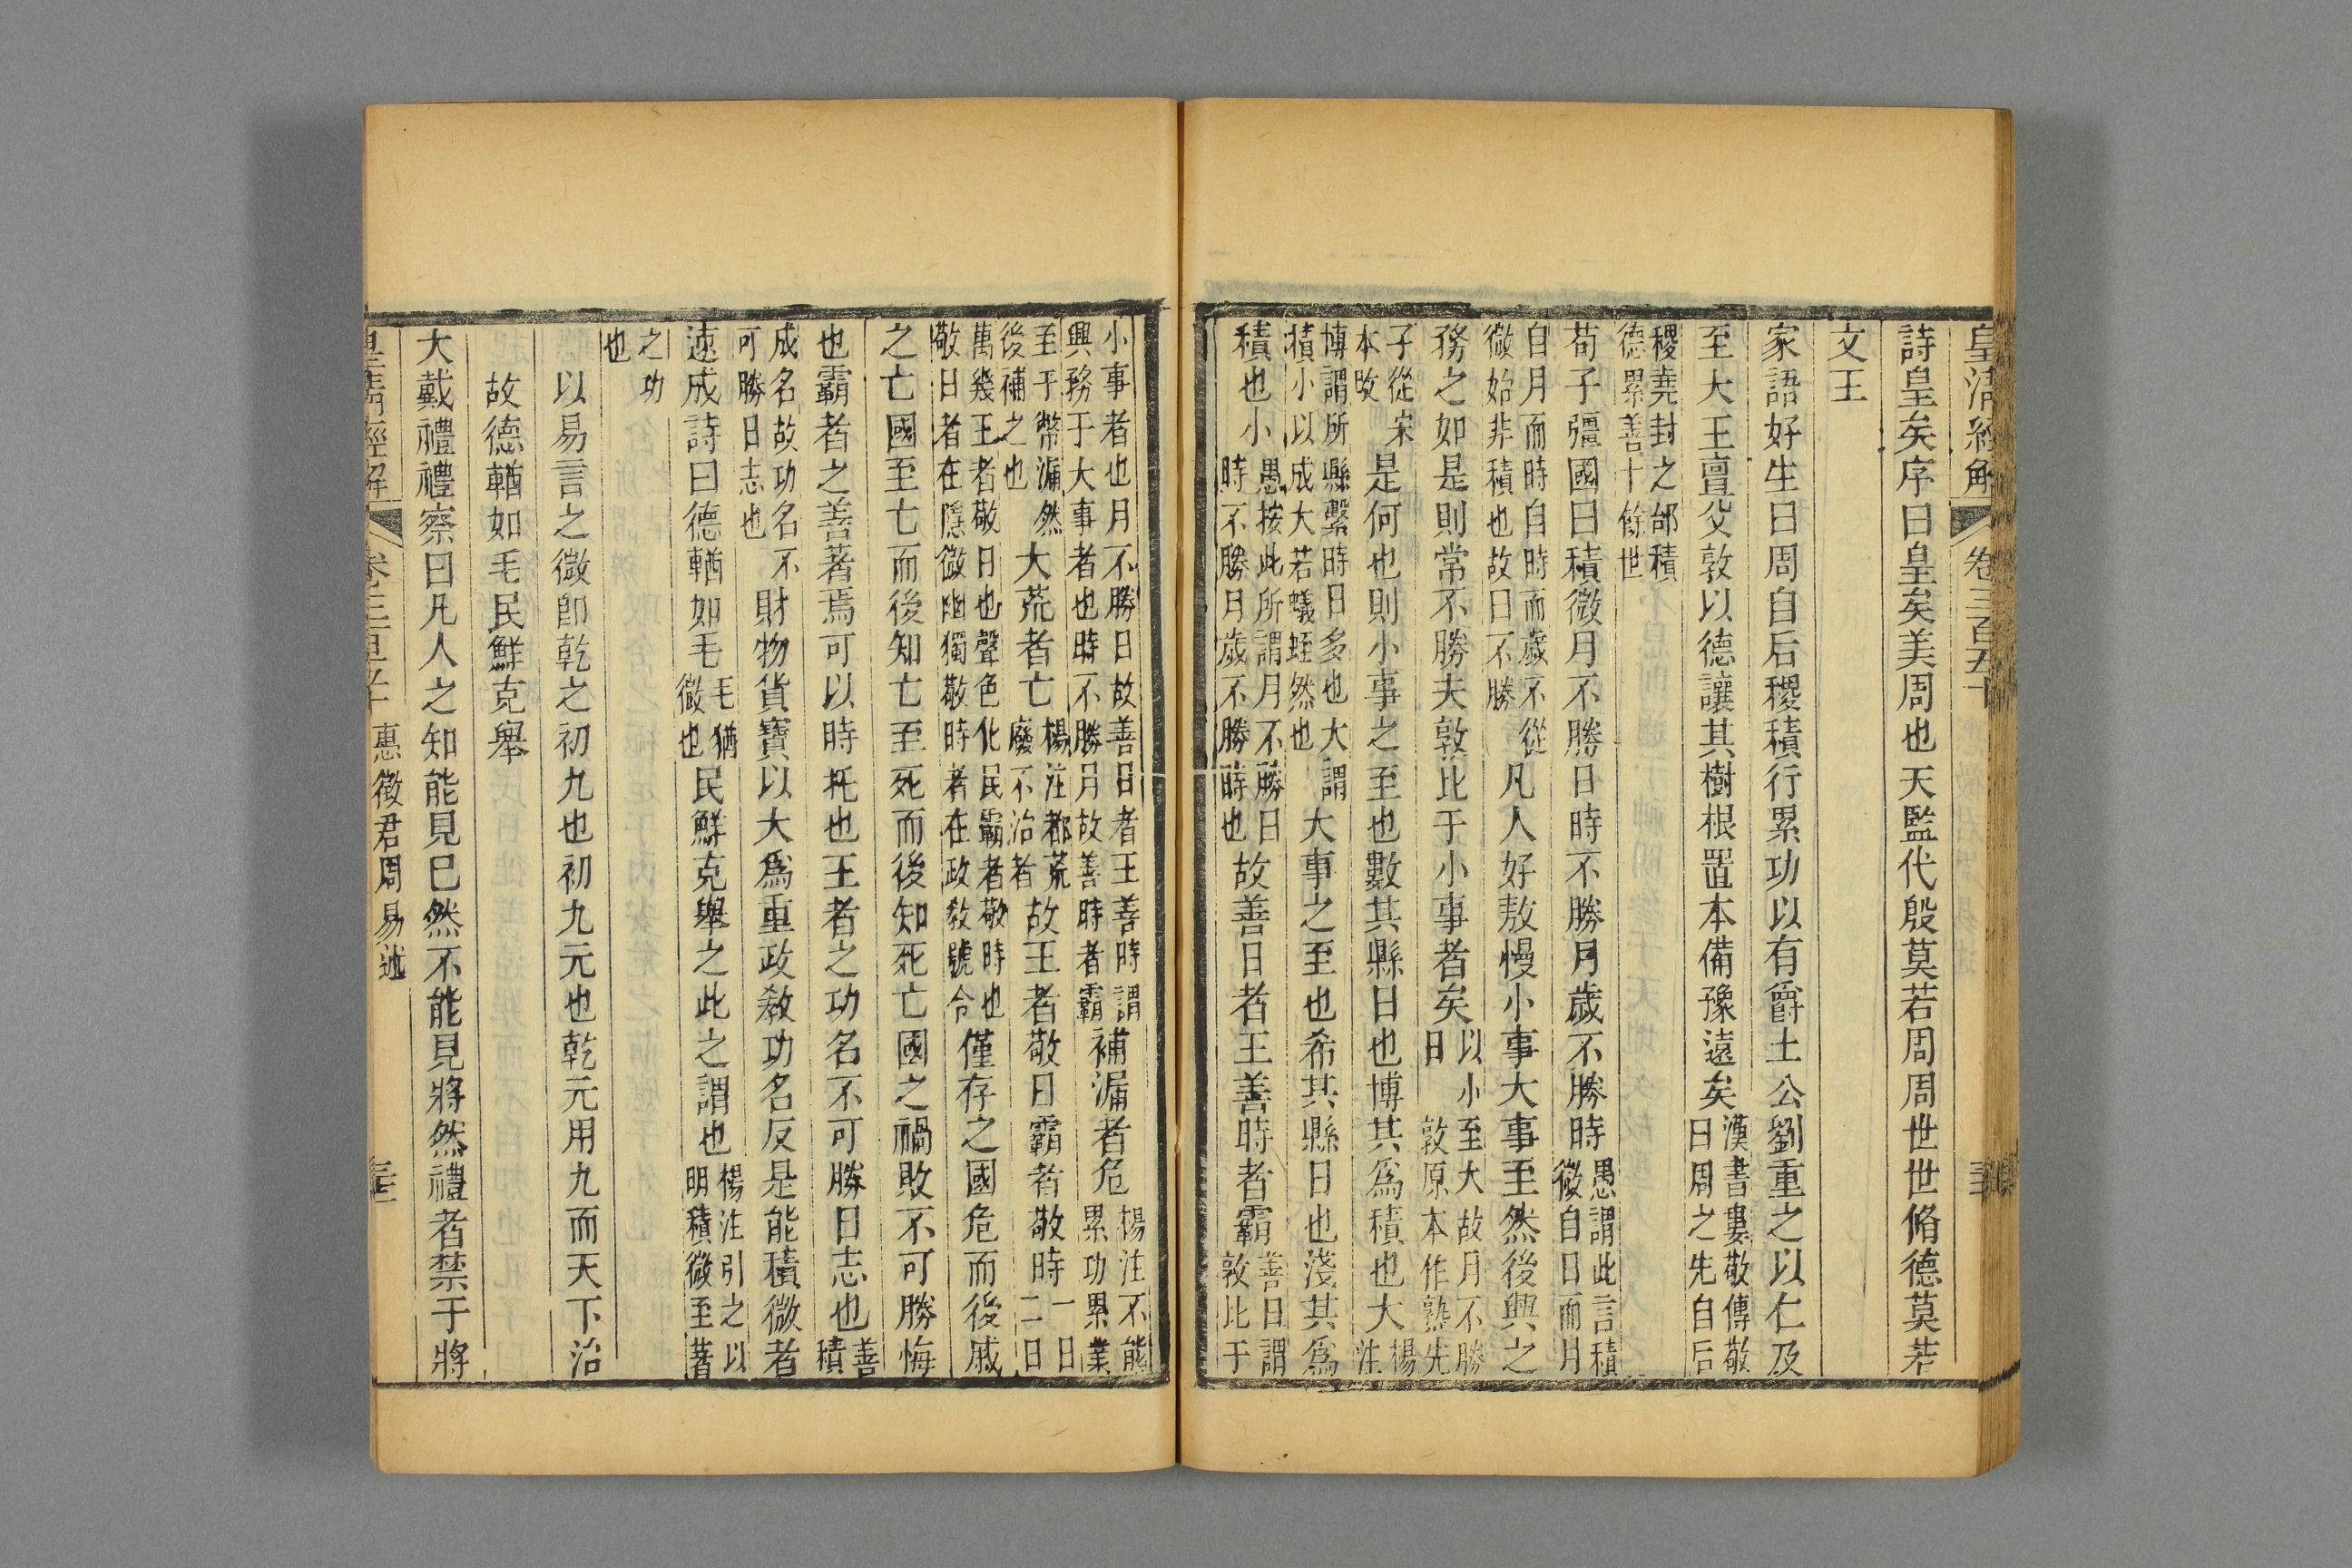 皇清經解 卷三百五十
詩皇矣序曰皇矣美周也天監代殷莫若周周世世脩德莫若
文王
家語好生曰周自后稷積行累功以有爵土公劉重之以仁及
至大王亶父敦以德讓其樹根置本備豫遠矣漢書婁敬傳敬曰周之先自后
稷堯封之邰積德累善十餘世
荀子彊國曰積微月不勝日時不勝月歲不勝時愚謂此言積微自日而月
自月而時自時而歲不從微始非積也故曰不勝凡人好敖慢小事大事至然後興之
務之如是則常不勝夫敦比于小事者矣以小至大故月不勝日 敦原本作熟先
子從宋本改是何也則小事之至也數其縣日也博其爲積也大楊注
博謂所縣繫時日多也大謂積小以成大若蟻蛭然也大事之至也希其縣日也淺其爲
積也小愚按此所謂月不勝日時不勝月歲不勝時也故善日者王善時者霸善日謂敦比于
小事者也月不勝日故善日者王善時謂興務于大事者也時不勝月故善時者霸補漏者危楊注不能累功累業
至于幣漏然後補之也大荒者亡楊注都荒廢不治者故王者敬日霸者敬時一日二日
萬幾王者敬日也聲色化民霸者敬時也敬日者在隱微幽獨敬時者在政敎號令僅存之國危而後戚
之亡國至亡而後知亡至死而後知死亡國之禍敗不可勝悔
也霸者之善著焉可以時托也王者之功名不可勝日志也善積
成名故功名不可勝日志也財物貨寶以大爲重政敎功名反是能積微者
速成詩曰德輶如毛毛猶微也民鮮克舉之此之謂也楊注引之以明積微至著
之功也
以易言之微卽乾之初九也初九元也乾元用九而天下治
故德輶如毛民鮮克舉
大戴禮禮察曰凡人之知能見已然不能見將然禮者禁于將
皇清經解 卷三百五十 惠徵君周易述